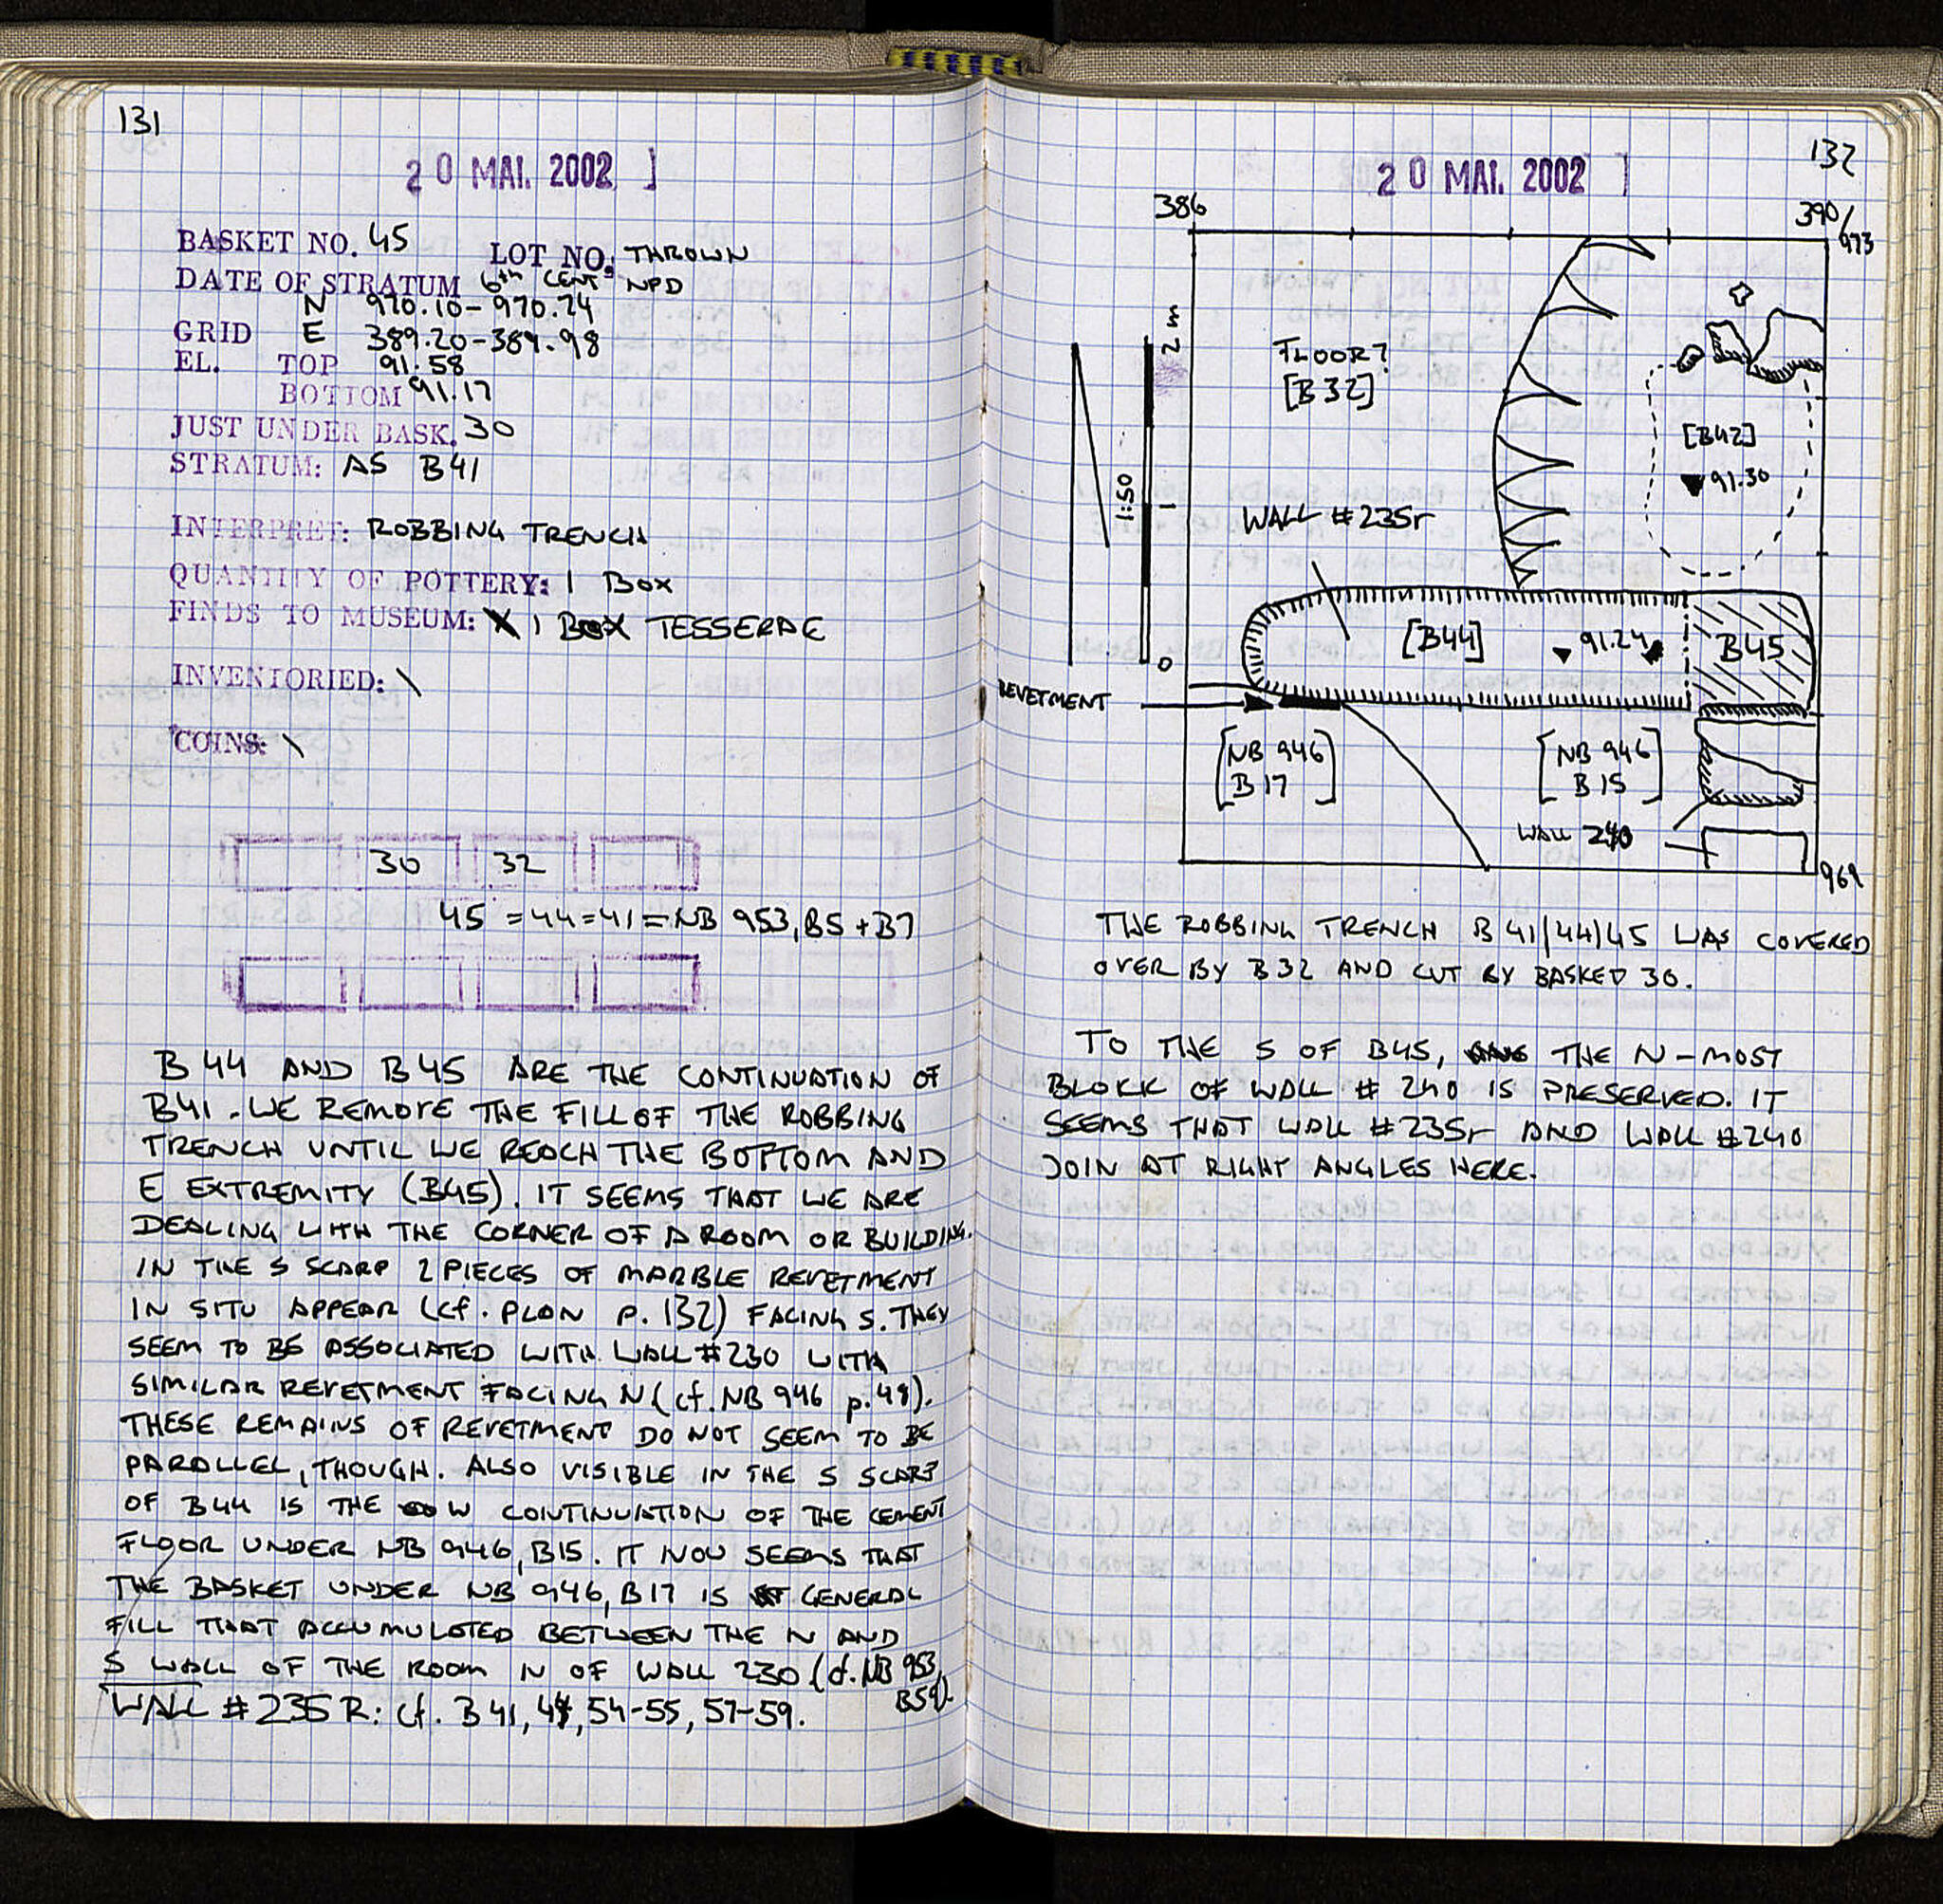 131
20 MAI. 2002
BASKET NO. 45 LOT NO: THROWN
DATE OF STRATUM 6th CENT NPD
N 970.10-970.24
GRID E 389.20-389.98
EL. TOP 91.58
BOTTOM 91.17
JUST UNDER BASK. 30
STRATUM: AS B41
INTERPRET: ROBBING TRENCH
QUANTITY OF POTTERY: 1 BOX
FINDS TO MUSEUM: 1 BOX TESSERAE
INVENTORIED: \
COINS: \
30 32
45 = 44 = 41 = NB 953, B5 + B7
B 44 AND B 45 ARE THE CONTINUATION OF
B41. WE REMOVE THE FILL OF THE ROBBING
TRENCH UNTIL WE REACH THE BOTTOM AND
E EXTREMITY (B45). IT SEEMS THAT WE ARE
DEALING WITH THE CORNER OF A ROOM OR BUILDING.
IN THE S SCARP 2 PIECES OF MARBLE REVETMENT
IN SITU APPEAR (cf. PLAN P. 132) FACING S. THEY
SEEM TO BE ASSOCIATED WITH WALL #230 WITH
SIMILAR REVETMENT FACING N (cf. NB 946 p.49).
THESE REMAINS OF REVETMENT DO NOT SEEM TO BE
PARALLEL, THOUGH. ALSO VISIBLE IN THE S SCARP
OF B44 IS THE W CONTINUATION OF THE CEMENT
FLOOR UNDER NB 946, B15. IT NOW SEEMS THAT
THE BASKET UNDER NB 946, B17 IS GENERAL
FILL THAT ACCUMULATED BETWEEN THE N AND
S WALL OF THE ROOM N OF WALL 230 (cf. NB 953,
B59).
WALL #235R: cf. B 41, 44, 54-55, 57-59.
132
20 MAI. 2002
386
390/
973
2 m
1
0
1:50
FLOOR?
[B32]
[B42]
91.30
WALL #235r
[B44]
91.24
B45
REVETMENT
[NB 946
B 17]
[NB 946
B 15]
WALL 240
969
THE ROBBING TRENCH B 41/44/45 WAS COVERED
OVER BY B 32 AND CUT BY BASKED 30.
TO THE S OF B45, THE N-MOST
BLOCK OF WALL # 240 IS PRESERVED. IT
SEEMS THAT WALL #235r AND WALL #240
JOIN AT RIGHT ANGLES HERE.